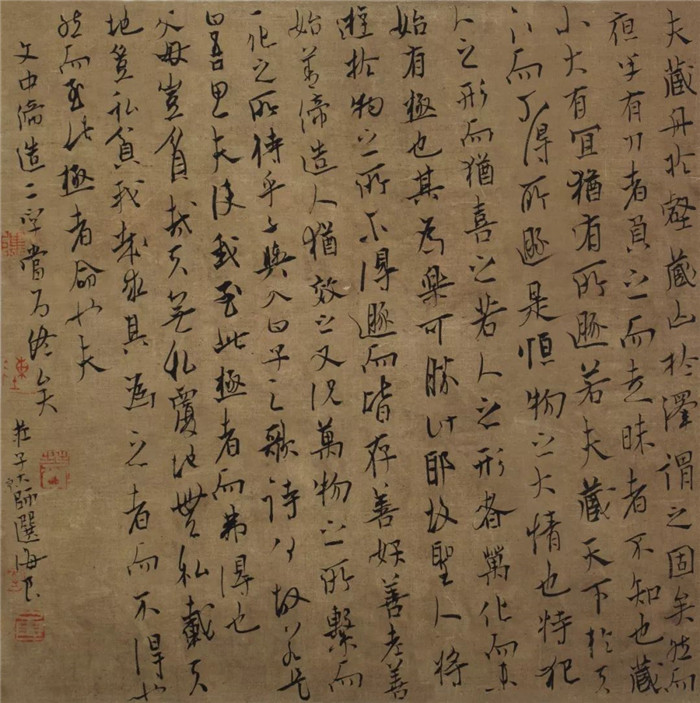 夫藏舟於壑藏山於澤謂之固矣然而
夜半有力者負之而走昧者不知也藏
小大有宜猶有所遯若夫藏天下於天
下而不得所遯是恒物之大情也特犯
人之形而猶喜之若人之形者萬化而未
始有極也其為樂可勝計邪故聖人將
遊於物之所不得遯而皆存善妖善老善
始善締造人猶效之又況萬物之所繫而
一化之所待乎子輿入曰子之歌詩何故若是
曰吾思夫使我至此極者而弗得也
父母豈貧哉天無私覆地無私載天
地豈私貧我哉求其為之者而不得也
然而至此極者命也夫
文中締造二字當為終矣
莊子大師選海